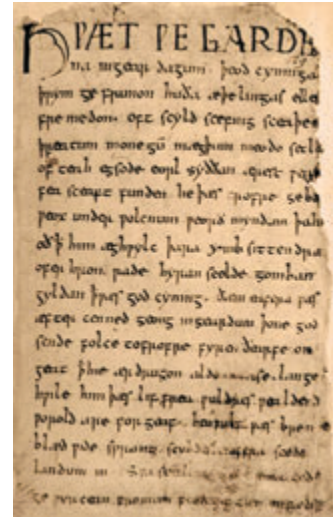 HǷÆT ǷE GARDE
na ingear dagum. þeod cyninga
þrym ge frunon huða æþelingas elle
fre medon. oft scyld scefing sceaþe
þreatum monegū mægþum meodo setla
of teah egsode eorl syððan ærest ƿear
fea sceaft funden he þæs frofre geba
ƿeox under ƿolcnum ƿeorð myndum þah
oð þ̄ him æghƿylc þara ymb sittendra
ofer hron rade hyran scolde gomban
gyldan þ̄ ƿæs god cyning. ðæm eafera ƿæs
æfter cenned geong ingeardum þone god
sende folce tofrofre fyren ðearfe on
geat þ̄ hie ær drugon aldor ase. lange
hƿile him þæs lif frea ƿuldres ƿealdend
ƿorold are for geaf. beoƿulf ƿæs breme
blæd ƿide sprang scyldes eafera scede
landum in. Sƿa sceal gode
ge ƿyrcean fromum feoh giftum